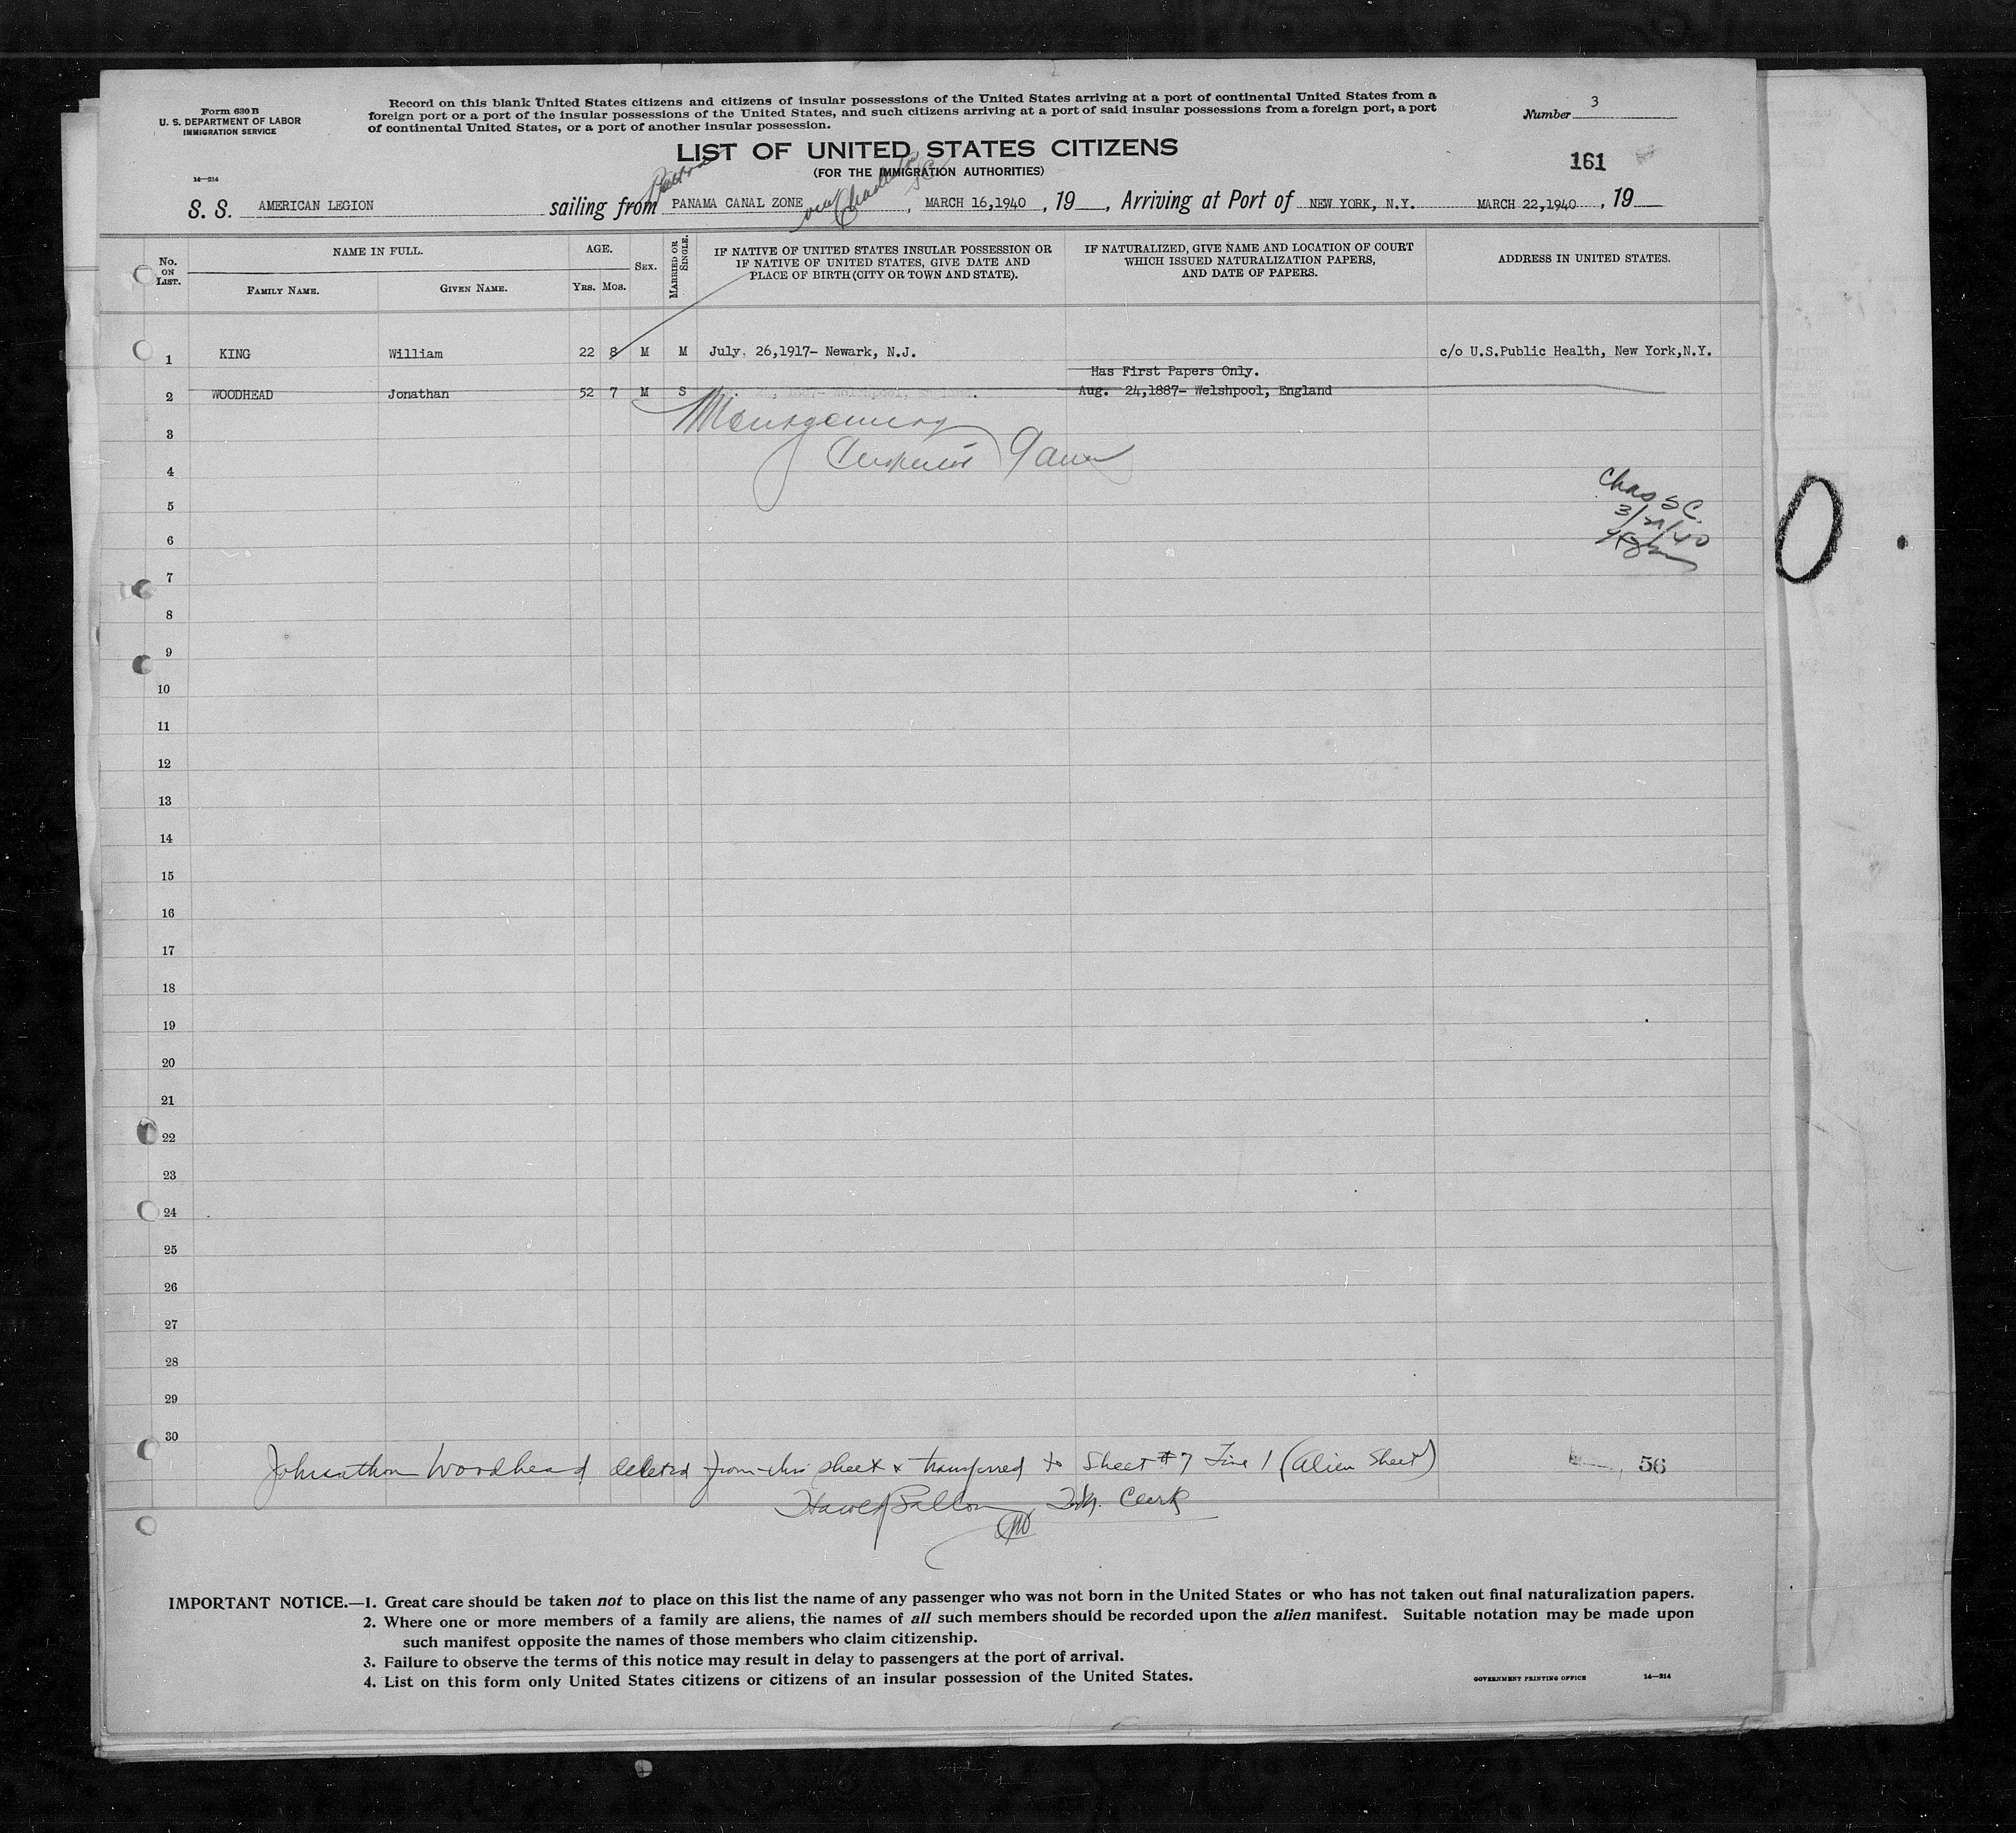 Form 630 B
U. S. DEPARTMENT OF LABOR
IMMIGRATION SERVICE
14—214
Record on this blank United States citizens and citizens of insular possessions of the United States arriving at a port of continental United States from a
foreign port or a port of the insular possessions of the United States, and such citizens arriving at a port of said insular possessions from a foreign port, a port
of continental United States, or a port of another insular possession.
Number 3
LIST OF UNITED STATES CITIZENS
(FOR THE IMMIGRATION AUTHORITIES)
161
S. S. AMERICAN LEGION sailing from PANAMA CANAL ZONE via Charleston SC, MARCH 16,1940, 19 , Arriving at Port of NEW YORK, N.Y. MARCH 22,1940, 19
No. ON LIST. NAME IN FULL. AGE. SEX. MARRIED OR SINGLE. IF NATIVE OF UNITED STATES INSULAR POSSESSION OR IF NATIVE OF UNITED STATES, GIVE DATE AND PLACE OF BIRTH (CITY OR TOWN AND STATE). IF NATURALIZED, GIVE NAME AND LOCATION OF COURT WHICH ISSUED NATURALIZATION PAPERS, AND DATE OF PAPERS. ADDRESS IN UNITED STATES.
FAMILY NAME. GIVEN NAME. YRS. MOS.
1 KING William 22 8 M M July 26,1917- Newark, N.J. c/o U.S.Public Health, New York,N.Y.
Has First Papers Only.
2 WOODHEAD Jonathan 52 7 M S Aug. 24,1887- Welshpool, England
Montgomery
3
4
Chas SC.
5
3/21/40
6
7
8
9
10
11
12
13
14
15
16
17
18
19
20
21
22
23
24
25
26
27
28
29
30
Johnathon Woodhead deleted from this sheet & transferred to Sheet #7 Line 1 (Alien Sheet)
56
Clerk
IMPORTANT NOTICE.—1. Great care should be taken not to place on this list the name of any passenger who was not born in the United States or who has not taken out final naturalization papers.
2. Where one or more members of a family are aliens, the names of all such members should be recorded upon the alien manifest. Suitable notation may be made upon
such manifest opposite the names of those members who claim citizenship.
3. Failure to observe the terms of this notice may result in delay to passengers at the port of arrival.
4. List on this form only United States citizens or citizens of an insular possession of the United States.
GOVERNMENT PRINTING OFFICE 14—214